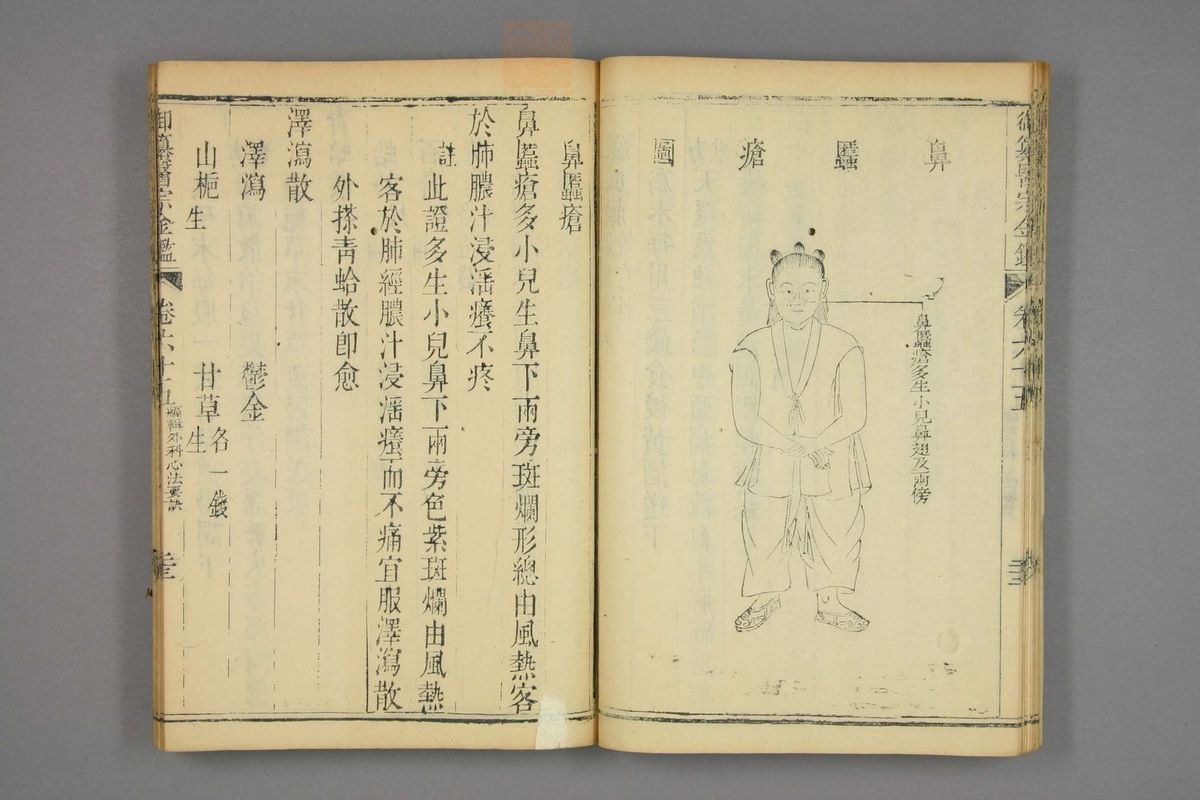 鼻
䘌
瘡
圖
鼻䘌瘡多生小兒鼻翅及兩傍
卷六十五
鼻䘌瘡
鼻䘌瘡多小兒生鼻下兩旁斑爛形總由風熱客
於肺膿汁浸滛癢不疼
註此證多生小兒鼻下兩旁色紫斑爛由風熱
客於肺經膿汁浸滛癢而不痛宜服澤瀉散
外搽青蛤散即愈
澤瀉散
澤瀉 鬱金
山梔生 甘草生 各一錢
御纂醫宗金鑑 卷六十五 編輯外科心法要訣